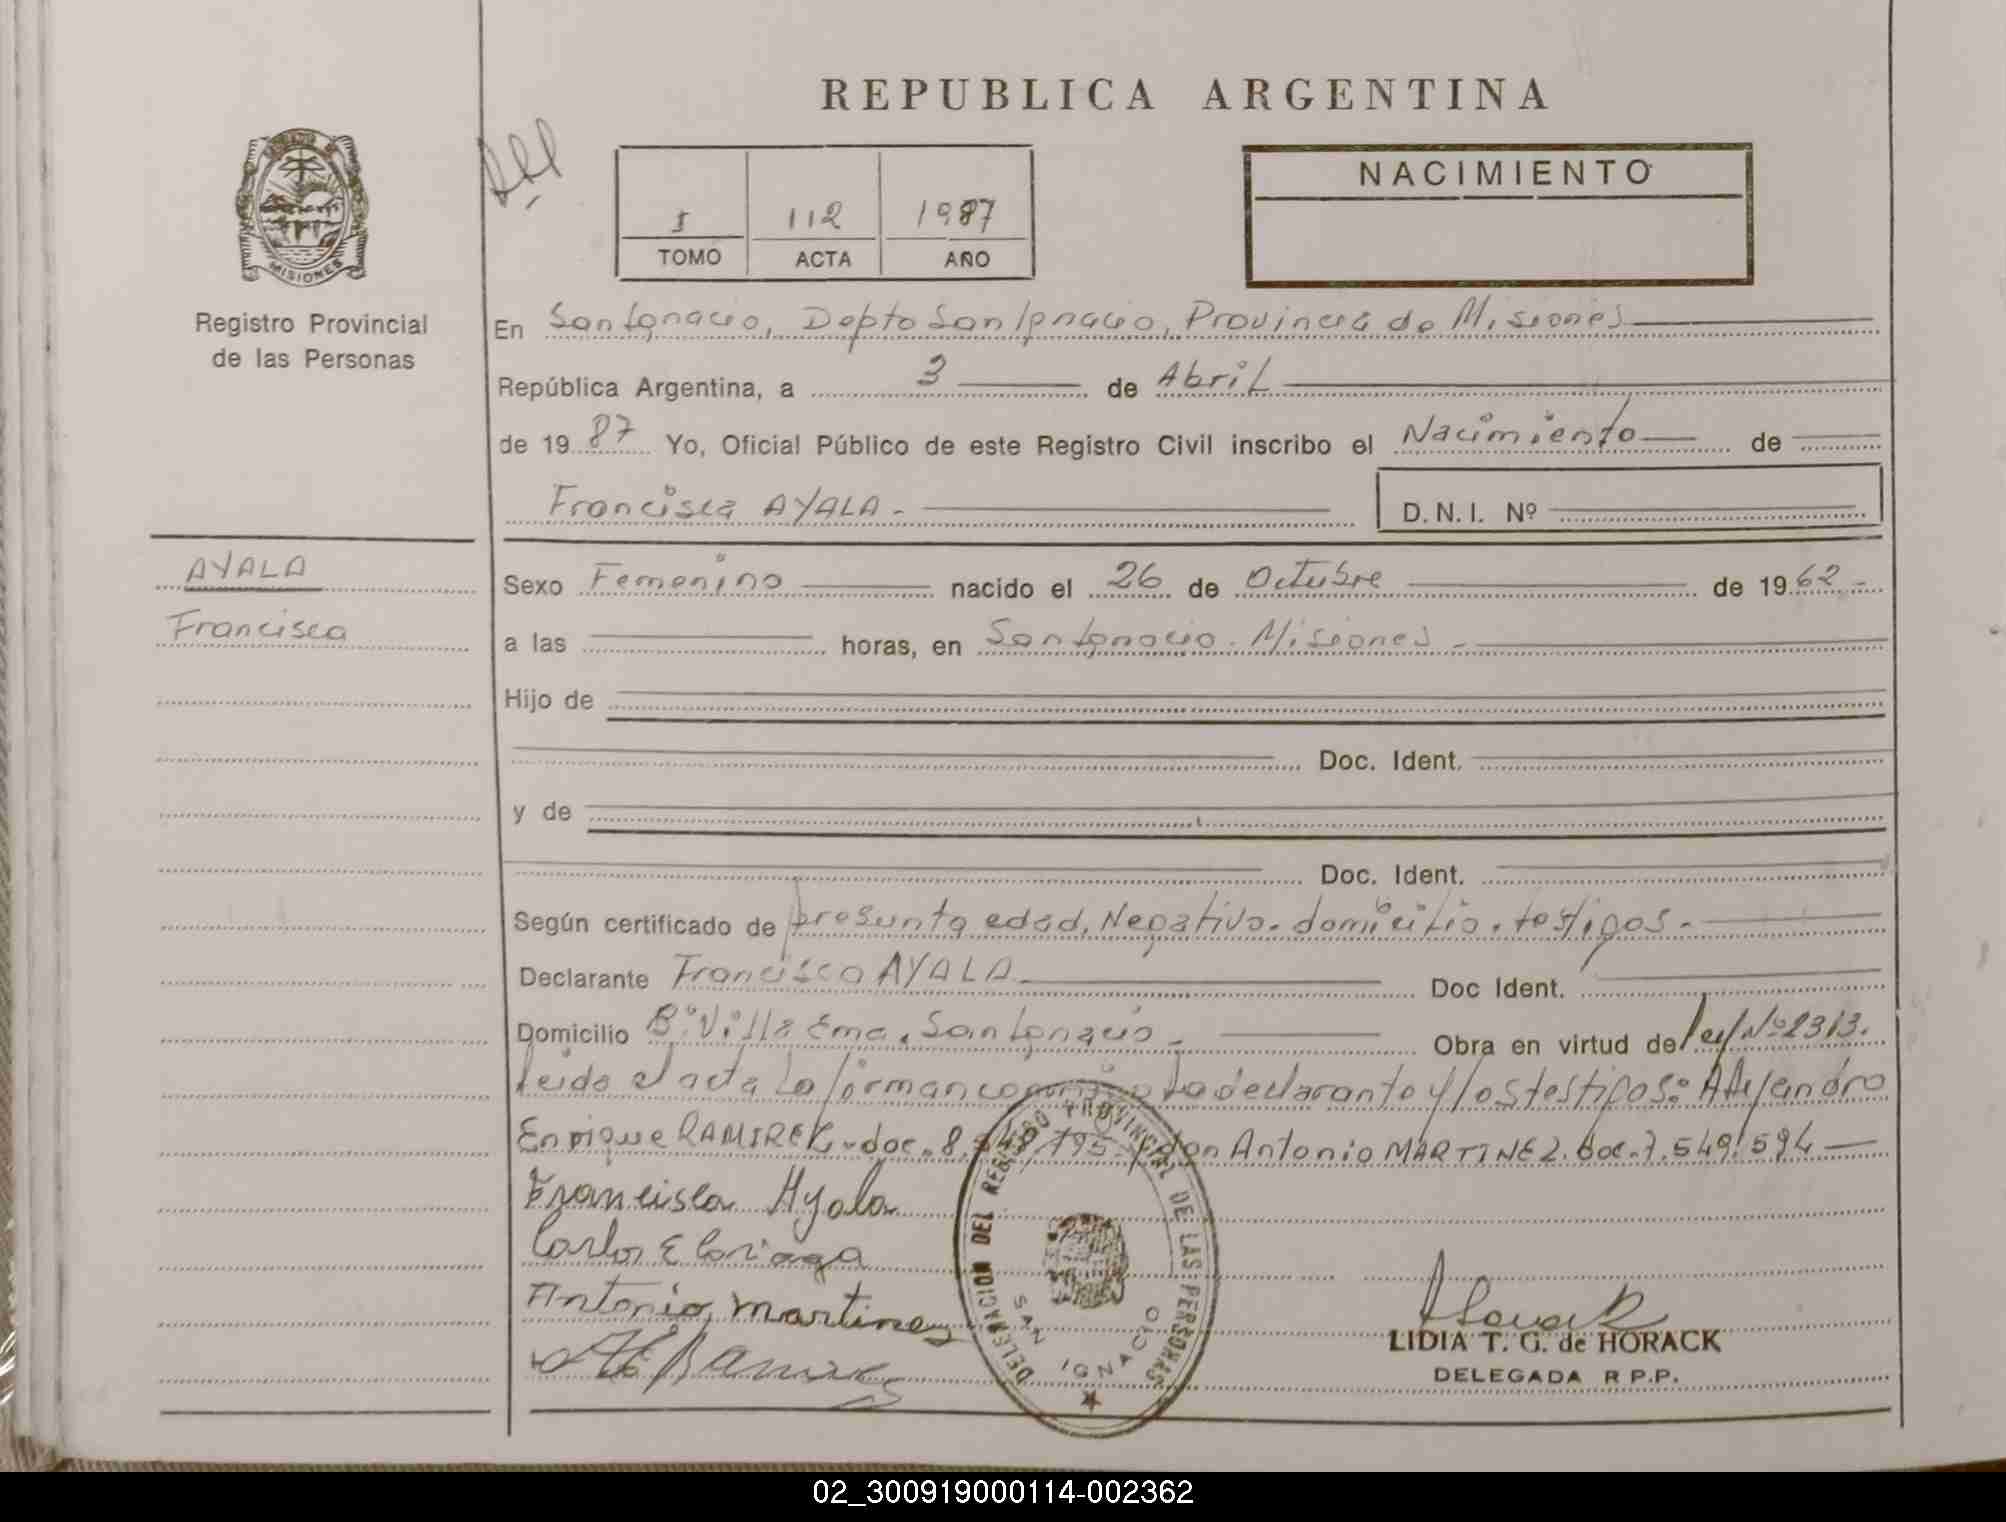 REPUBLICA ARGENTINA
NACIMIENTO
I 112 1987
TOMO ACTA AÑO
MISIONES
Registro Provincial
de las Personas
En San Ignacio, Depto San Ignacio, Provincia de Misiones
República Argentina, a 3 de Abril
de 1987 Yo, Oficial Público de este Registro Civil inscribo el Nacimiento de
Francisca AYALA.- D.N.I. Nº
AYALA
Francisca
Sexo Femenino nacido el 26 de Octubre de 1962.-
a las horas, en San Ignacio. Misiones.-
Hijo de
Doc. Ident.
y de
Doc. Ident.
Según certificado de presunta edad, Negativo. domicilio, testigos.-
Declarante Francisca AYALA Doc Ident.
Domicilio Bº Villa Ema, San Ignacio.- Obra en virtud de ley Nº 2313.
Leida el acta la firman conmigo la declarante y los testigos: Alejandro
Enrique RAMIREZ-doc. 8. 795 y don Antonio MARTINEZ. doc. 7.549.594
Francisca Ayala
Carlos E
Antonio, martinez
DELEGACION DEL REGISTRO PROVINCIAL DE LAS PERSONAS
SAN IGNACIO
LIDIA T. G. de HORACK
DELEGADA R P.P.
02_300919000114-002362